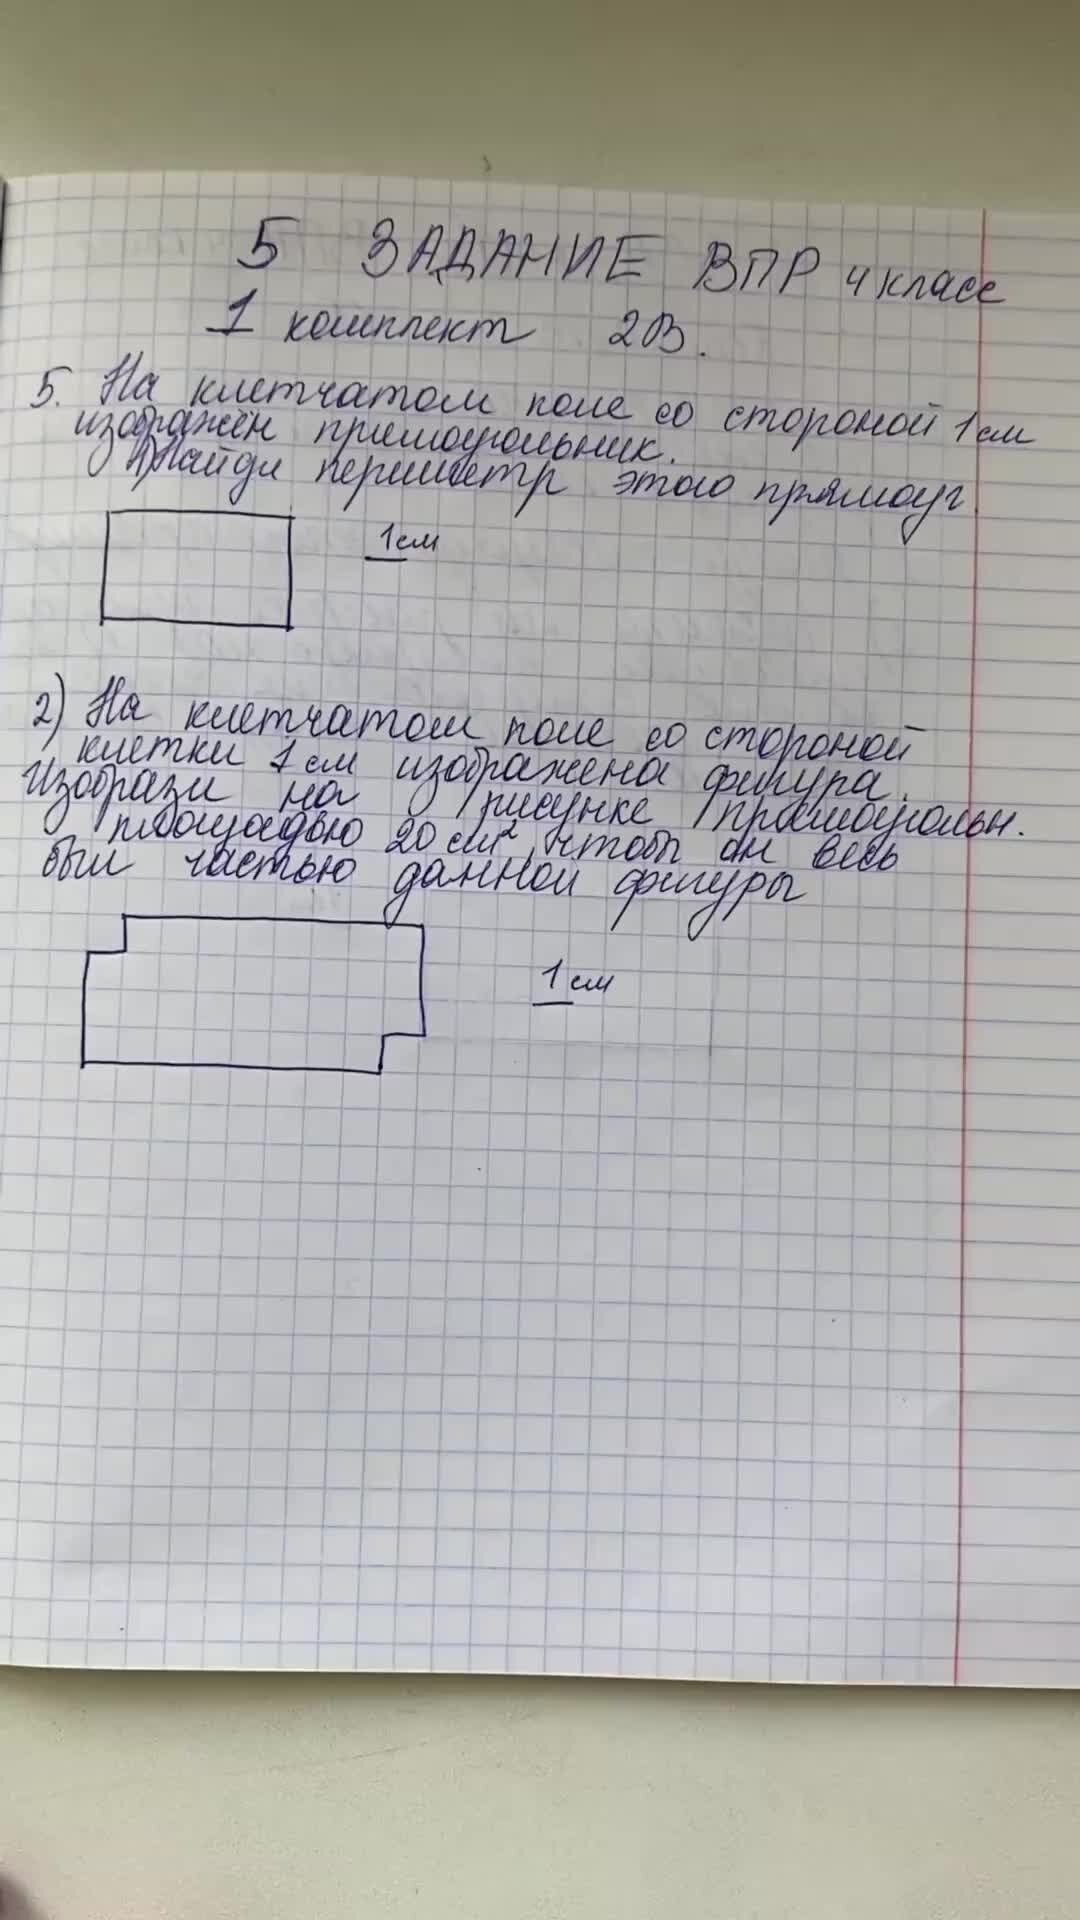 5 ЗАДАНИЕ ВПР 4 класс
1 комплект 2В.
5. На клетчатом поле со стороной 1см
изображён прямоугольник.
1) Найди периметр этого прямоуг
1см
2) На клетчатом поле со стороной
клетки 1 см изображена фигура.
Изобрази на рисунке прямоугольн.
площадью 20 см², чтобы он весь
был частью данной фигуры
1 см